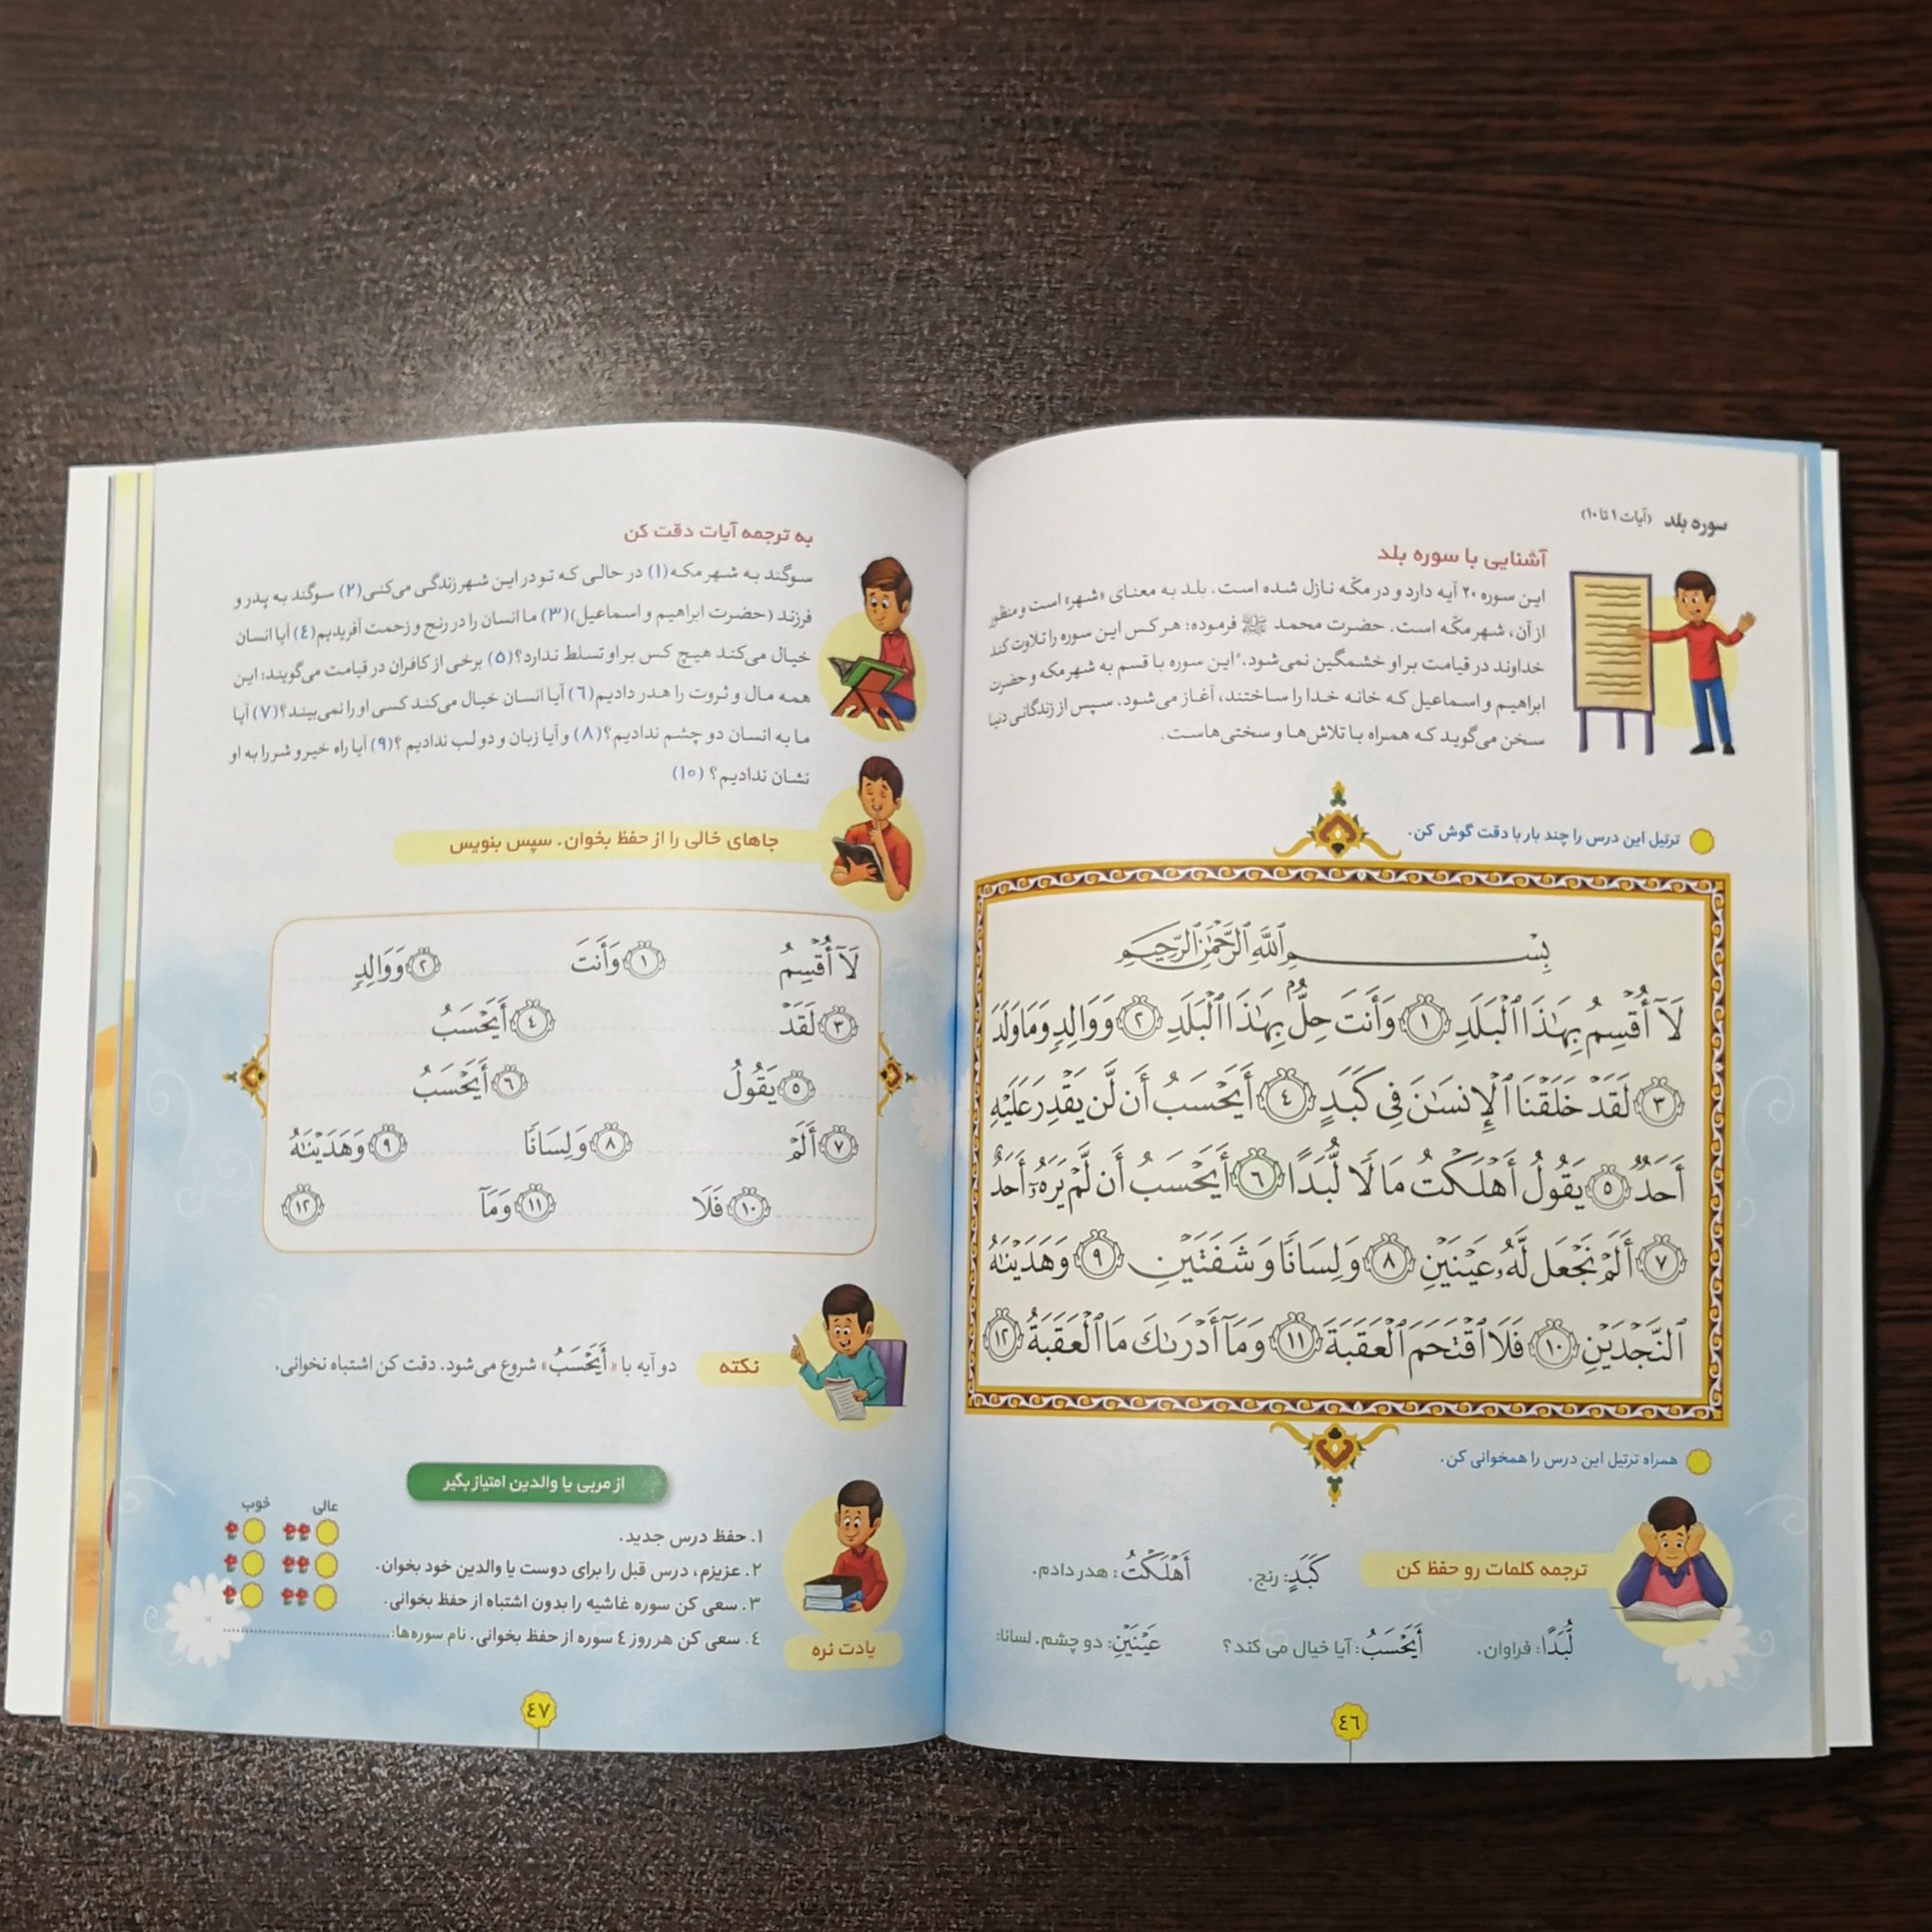 سوره بلد (آیات ۱ تا ۱۰)
آشنایی با سوره بلد
این سوره ۲۰ آیه دارد و در مکّه نازل شده است. بلد به معنای «شهر» است و منظور
از آن، شهر مکّه است. حضرت محمد ﷺ فرموده: هر کس این سوره را تلاوت کند
خداوند در قیامت بر او خشمگین نمی‌شود.* این سوره با قسم به شهر مکه و حضرت
ابراهیم و اسماعیل که خانه خدا را ساختند، آغاز می‌شود. سپس از زندگانی دنیا
سخن می‌گوید که همراه با تلاش‌ها و سختی‌هاست.
ترتیل این درس را چند بار با دقت گوش کن.
بِسْمِ ٱللَّهِ ٱلرَّحْمَٰنِ ٱلرَّحِيمِ
لَآ أُقْسِمُ بِهَٰذَا ٱلْبَلَدِ ﴿١﴾ وَأَنتَ حِلٌّۢ بِهَٰذَا ٱلْبَلَدِ ﴿٢﴾ وَوَالِدٍ وَمَا وَلَدَ
﴿٣﴾ لَقَدْ خَلَقْنَا ٱلْإِنسَٰنَ فِي كَبَدٍ ﴿٤﴾ أَيَحْسَبُ أَن لَّن يَقْدِرَ عَلَيْهِ
أَحَدٌ ﴿٥﴾ يَقُولُ أَهْلَكْتُ مَالًا لُّبَدًا ﴿٦﴾ أَيَحْسَبُ أَن لَّمْ يَرَهُۥٓ أَحَدٌ
﴿٧﴾ أَلَمْ نَجْعَل لَّهُۥ عَيْنَيْنِ ﴿٨﴾ وَلِسَانًا وَشَفَتَيْنِ ﴿٩﴾ وَهَدَيْنَٰهُ
ٱلنَّجْدَيْنِ ﴿١٠﴾ فَلَا ٱقْتَحَمَ ٱلْعَقَبَةَ ﴿١١﴾ وَمَآ أَدْرَىٰكَ مَا ٱلْعَقَبَةُ ﴿١٢﴾
همراه ترتیل این درس را همخوانی کن.
ترجمه کلمات رو حفظ کن
كَبَدٍ: رنج. أَهْلَكْتُ: هدر دادم.
لُّبَدًا: فراوان. أَيَحْسَبُ: آیا خیال می کند؟ عَيْنَيْنِ: دو چشم. لسانا:
٤٦
به ترجمه آیات دقت کن
سوگند به شهر مکه(۱) در حالی که تو در این شهر زندگی می‌کنی(۲) سوگند به پدر و
فرزند (حضرت ابراهیم و اسماعیل)(۳) ما انسان را در رنج و زحمت آفریدیم(٤) آیا انسان
خیال می‌کند هیچ کس بر او تسلط ندارد؟(۵) برخی از کافران در قیامت می‌گویند: این
همه مال و ثروت را هدر دادیم(٦) آیا انسان خیال می‌کند کسی او را نمی‌بیند؟(۷) آیا
ما به انسان دو چشم ندادیم؟(۸) و آیا زبان و دو لب ندادیم ؟(۹) آیا راه خیر و شر را به او
نشان ندادیم؟ (۱۰)
جاهای خالی را از حفظ بخوان. سپس بنویس
لَآ أُقْسِمُ ﴿١﴾ وَأَنتَ ﴿٢﴾ وَوَالِدٍ
﴿٣﴾ لَقَدْ ﴿٤﴾ أَيَحْسَبُ
﴿٥﴾ يَقُولُ ﴿٦﴾ أَيَحْسَبُ
﴿٧﴾ أَلَمْ ﴿٨﴾ وَلِسَانًا ﴿٩﴾ وَهَدَيْنَٰهُ
﴿١٠﴾ فَلَا ﴿١١﴾ وَمَآ ﴿١٢﴾
نکته
دو آیه با «أَيَحْسَبُ» شروع می‌شود. دقت کن اشتباه نخوانی.
از مربی یا والدین امتیاز بگیر
عالی خوب
۱. حفظ درس جدید.
۲. عزیزم، درس قبل را برای دوست یا والدین خود بخوان.
۳. سعی کن سوره غاشیه را بدون اشتباه از حفظ بخوانی.
٤. سعی کن هر روز ٤ سوره از حفظ بخوانی. نام سوره‌ها:
یادت نره
٤٧